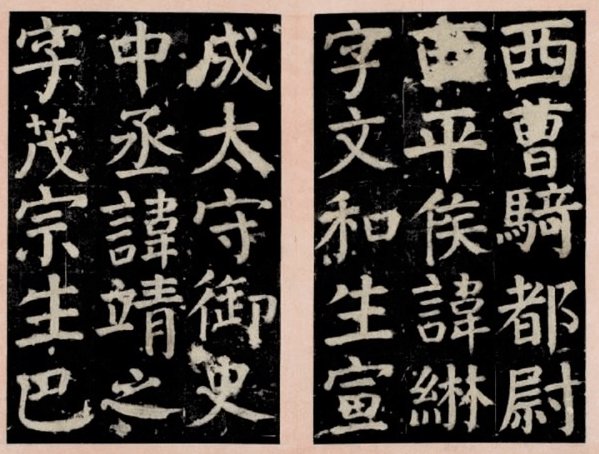 西曹騎都尉
西平侯諱綝
字文和生宣
成太守御史
中丞諱靖之
字茂宗生巴